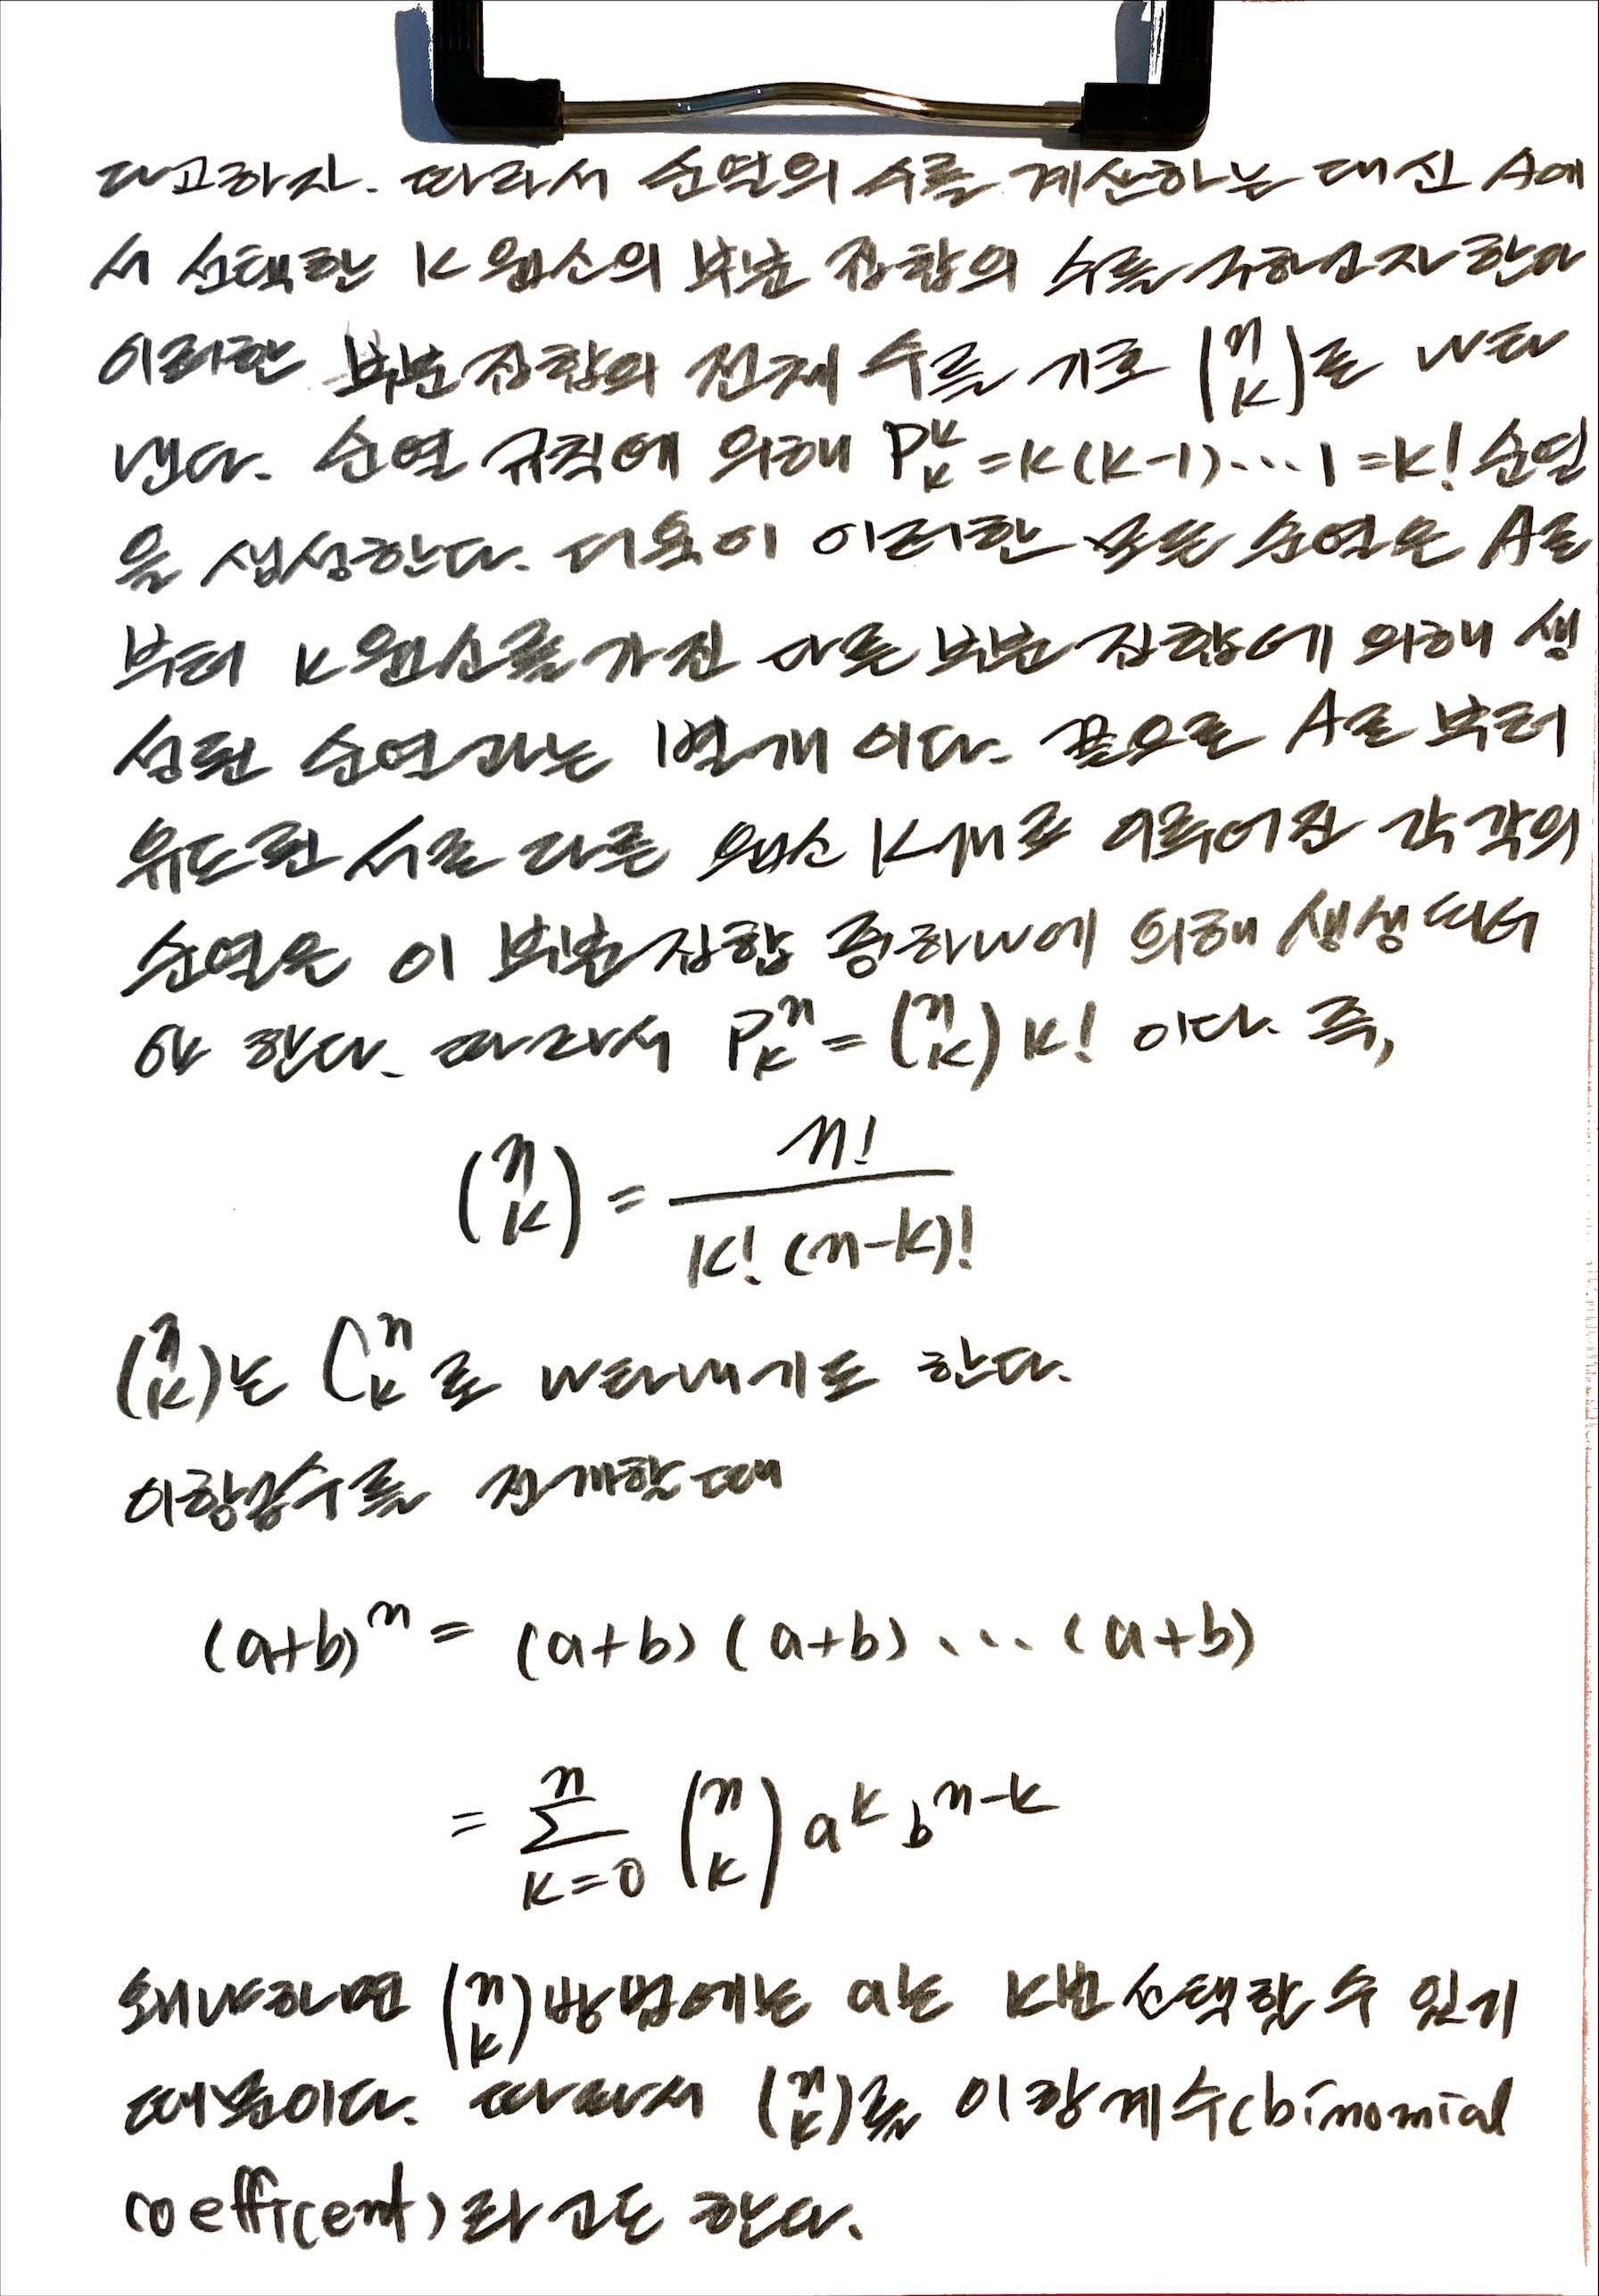 다고하자. 따라서 순열의 수를 계산하는 대신 A에
서 선택한 K 원소의 부분 집합의 수를 구하고자 한다
이러한 부분집합의 전체 수를 기호 (n k)로 나타
낸다. 순열 규칙에 의해 P_k^k = k(k-1)⋯1 = k! 순열
을 생성한다. 더욱이 이러한 모든 순열은 A로
부터 K원소를 가진 다른 부분 집합에 의해 생
성된 순열과는 별개 이다. 끝으로 A로 부터
유도된 서로 다른 원소 K개로 이루어진 각각의
순열은 이 부분집합 중하나에 의해 생성되어
야 한다. 따라서 P_k^n = (n k) k! 이다. 즉,
(n k) = n! / k!(n-k)!
(n k)는 C_k^n로 나타내기도 한다.
이항급수를 전개할때
(a+b)^n = (a+b)(a+b)⋯(a+b)
= Σ_{k=0}^{n} (n k) a^k b^{n-k}
왜냐하면 (n k)방법에는 a는 K번 선택할 수 있기
때문이다. 따라서 (n k)를 이항계수(binomial
coefficent)라고도 한다.